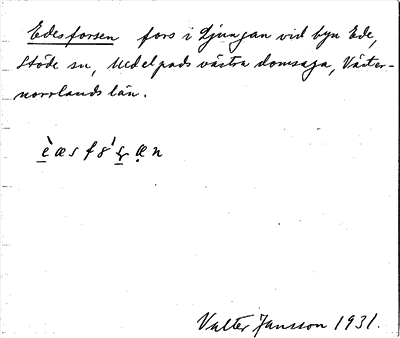 Edesforsen fors i Ljungan vid byn Ede,
Stöde sn, Medelpads västra domsaga, Väster-
norrlands län.
Valter Jansson 1931.